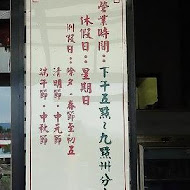 營業時間：下午五點～九點卅分
休假日：星期日
例假日：除夕．春節至初五
清明節．中元節
端午節．中秋節